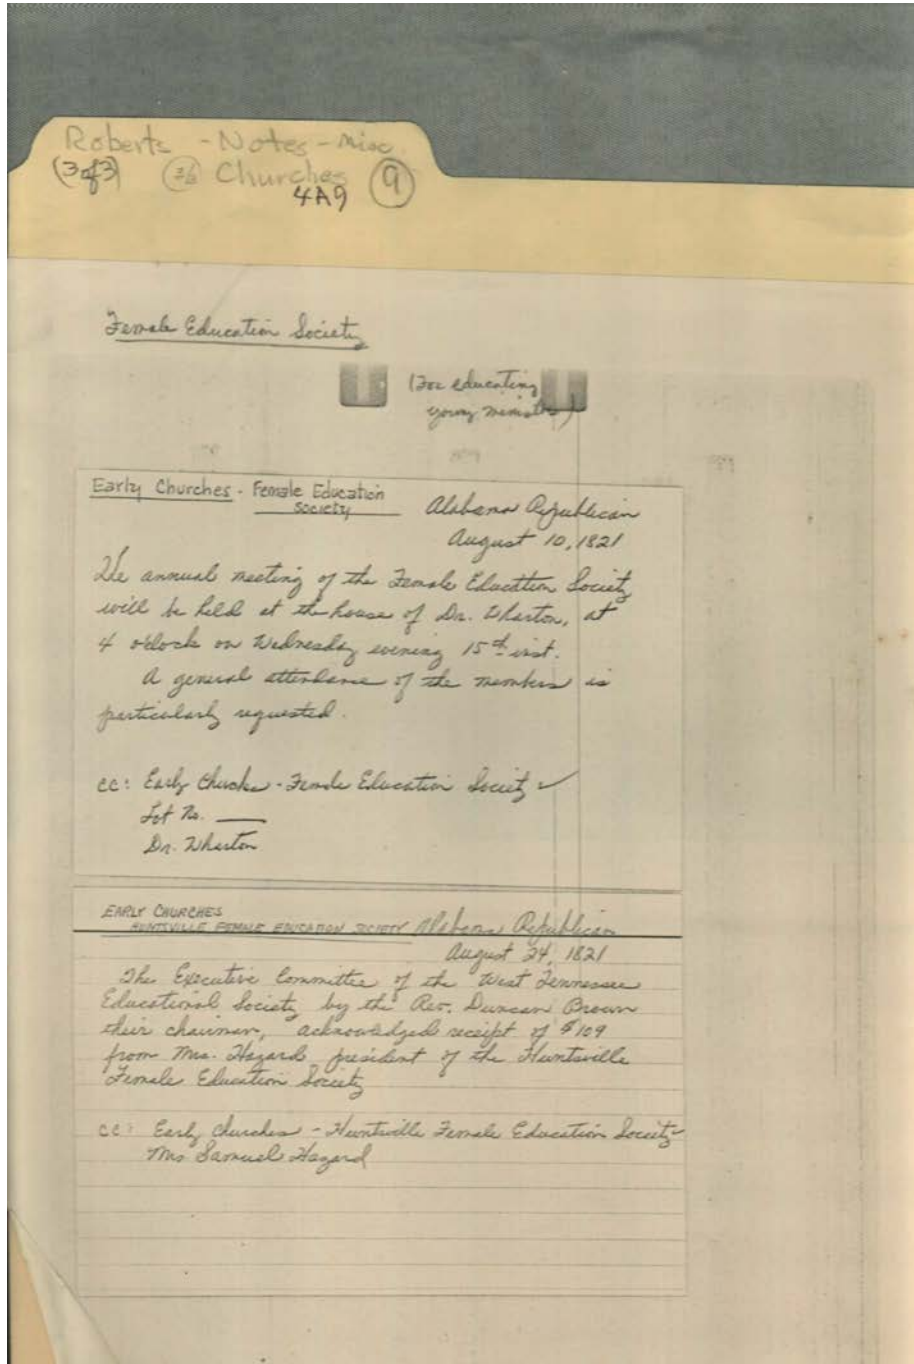 Roberts - Notes - Misc.
(3 of 3) Churches 9
4A9
Female Education Society
(For educating
young ministers)
Early Churches - Female Education
Society
Alabama Republican
August 10, 1821
The annual meeting of the Female Education Society
will be held at the house of Dr. Wharton, at
4 o'clock on Wednesday evening 15th inst.
A general attendance of the members is
particularly requested.
cc: Early Churches - Female Education Society ✓
Lot No. ____
Dr. Wharton
EARLY CHURCHES
HUNTSVILLE FEMALE EDUCATION SOCIETY Alabama Republican
August 24, 1821
The Executive Committee of the West Tennessee
Educational Society by the Rev. Duncan Brown
their chairman, acknowledged receipt of $109
from Mrs. Hazard president of the Huntsville
Female Education Society
cc: Early Churches - Huntsville Female Education Society ✓
Mrs Samuel Hazard